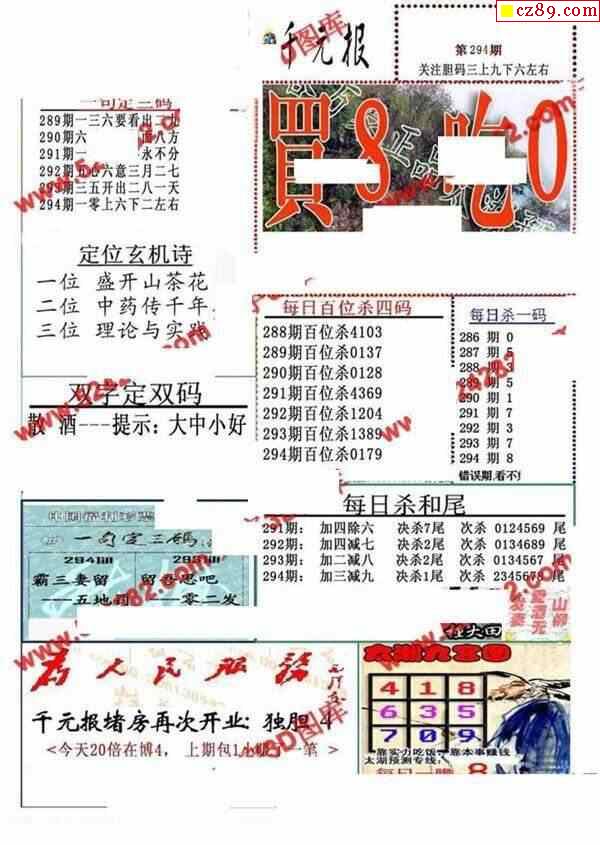 cz89.com
千元报
第294期
关注胆码三上九下六左右
一句定三码
289期一三六要看出二九
290期六 面八方
291期一 永不分
292期五心六意三月二七
293期三五开出二八一天
294期一零上六下二左右
買8 吃0
定位玄机诗
一位 盛开山茶花
二位 中药传千年
三位 理论与实践
双字定双码
散 酒---提示：大中小好
每日百位杀四码
288期百位杀4103
289期百位杀0137
290期百位杀0128
291期百位杀4369
292期百位杀1204
293期百位杀1389
294期百位杀0179
每日杀一码
286 期 0
287 期 5
288 期 3
289 期 5
290 期 1
291 期 7
292 期 3
293 期 7
294 期 8
错误期,看不
每日杀和尾
291期： 加四除六 决杀7尾 次杀 0124569 尾
292期： 加四减七 决杀2尾 次杀 0134689 尾
293期： 加二减八 决杀1尾 次杀 0134567 尾
294期： 加三减九 决杀1尾 次杀 2345678 尾
一句定三码
霸三妻留
——五地
——零二发
为人民服务
千元报堵房再次开业：独胆 4
<今天20倍在博4， 上期包1小赚了一笔 >
4 1 8
6 3 5
7 0 9
靠实力吃饭，靠本事赚钱
太湖预测专线：
每日一嘴 8